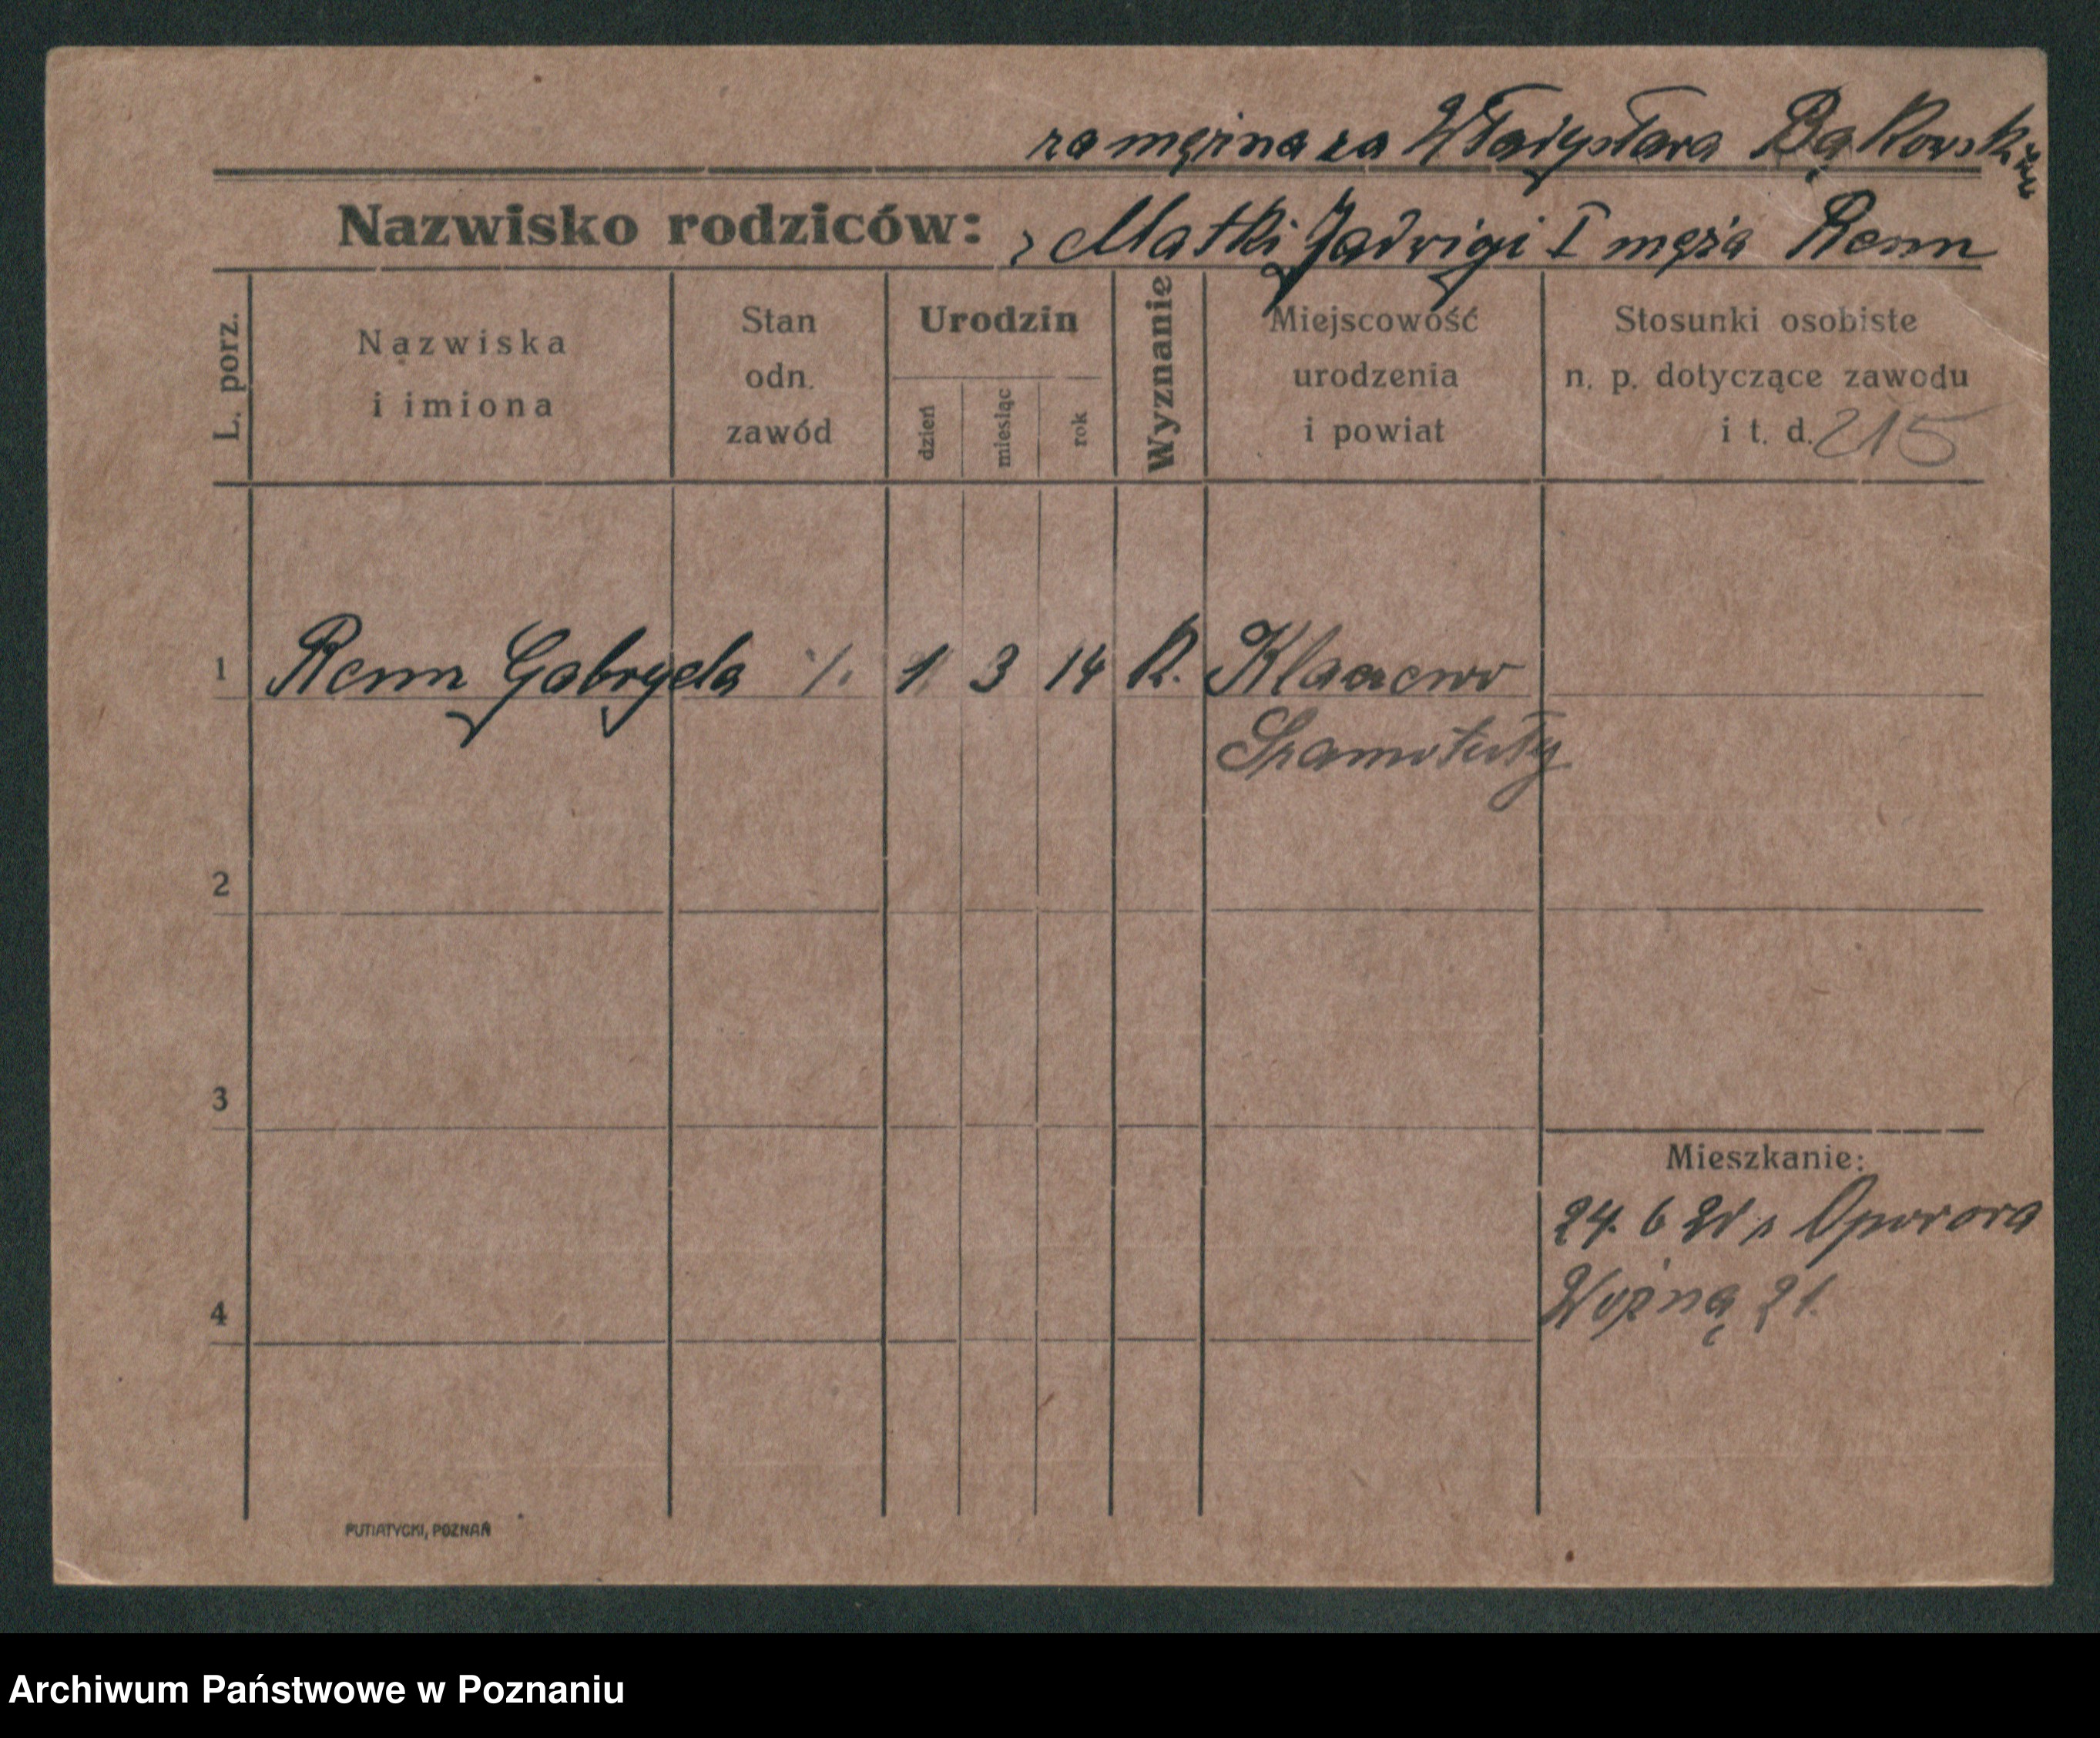 zamężna za Władysława Bąkowskim
Nazwisko rodziców: z Matki Jadwigi I męża Renn
L. porz.
Nazwiska
i imiona
Stan
odn.
zawód
Urodzin
dzień
miesiąc
rok
Wyznanie
Miejscowość
urodzenia
i powiat
Stosunki osobiste
n. p. dotyczące zawodu
i t. d. 215
1 Renn Gabryela ·/. 1 3 14 R. Kłaczewo
Szamotuły
2
3
Mieszkanie:
24. 6 21 z Oporowa
4 Woźną 21.
PUTIATYCKI, POZNAŃ
Archiwum Państwowe w Poznaniu